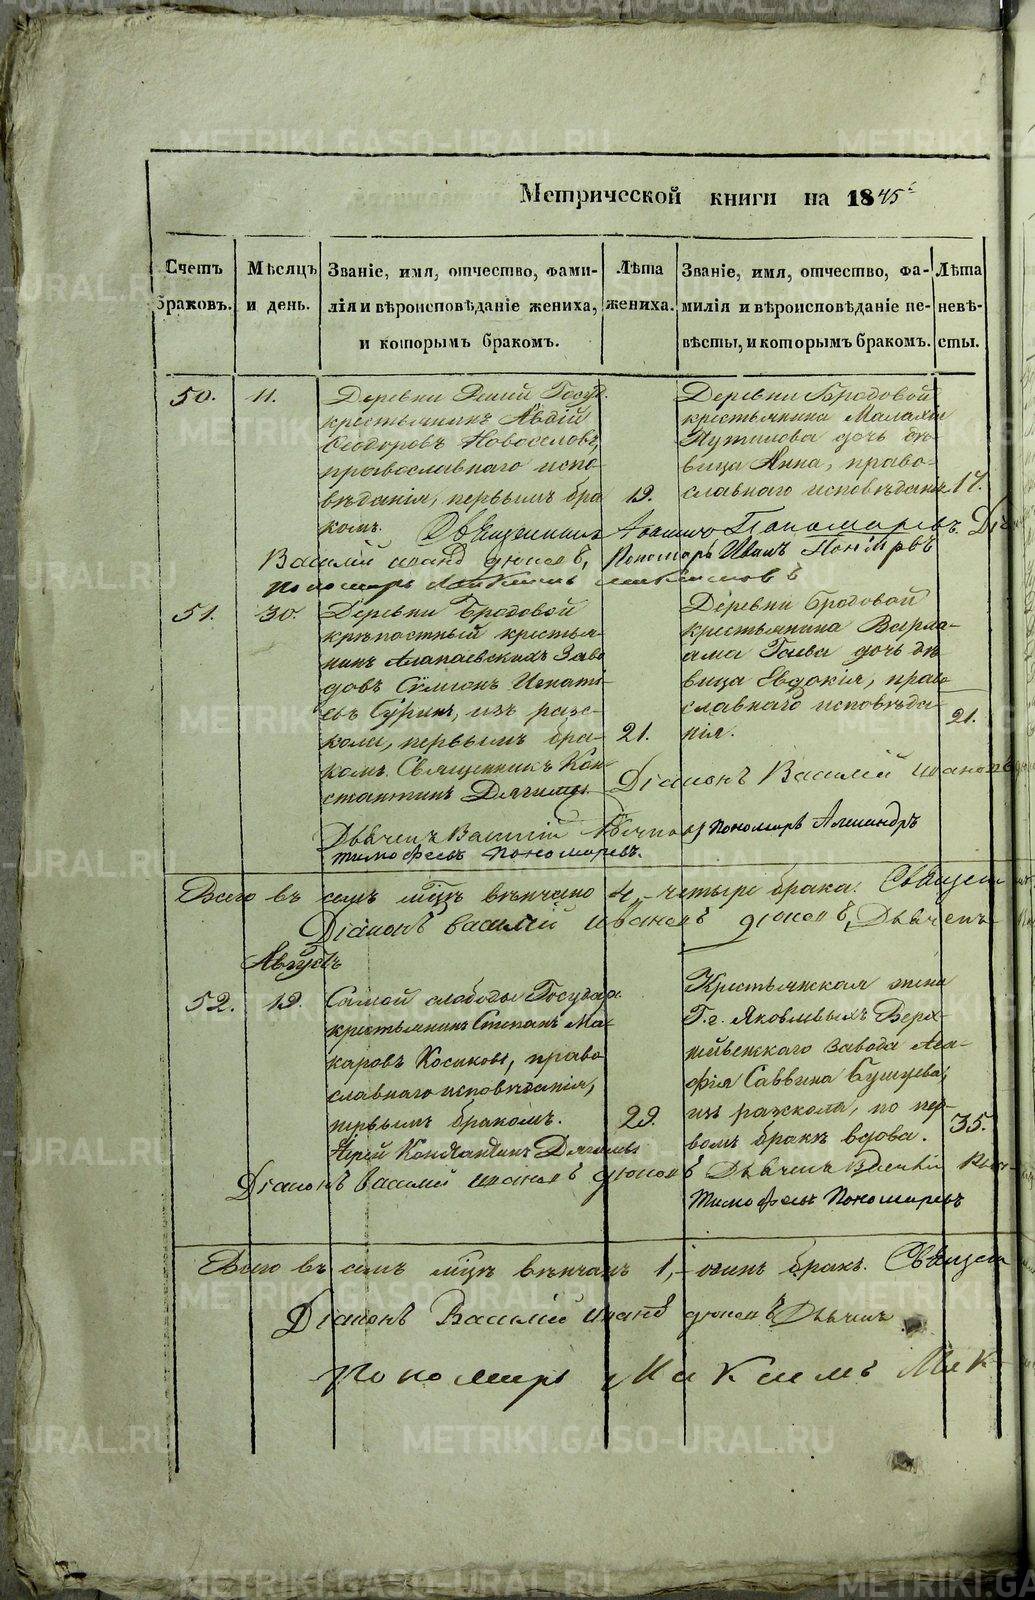 Метрической книги на 1845й
Счетъ браковъ.
Мѣсяцъ и день.
Званіе, имя, отчество, фами-
лія и вѣроисповѣданіе жениха,
и которымъ бракомъ.
Лѣта жениха.
Званіе, имя, отчество, фа-
милія и вѣроисповѣданіе не-
вѣсты, и которымъ бракомъ.
Лѣта невѣ-
сты.
50.
11.
Деревни Госуд.
крестьянинъ Авдій
Ѳеодоровъ Новоселовъ,
православнаго испо-
вѣданія, первымъ бра
комъ.
19.
Деревни Бродовой
крестьянина Малахіи
Путилова дочь дѣ-
вица Анна, право-
славнаго исповѣданія
17.
Священникъ Пономаревъ.
Василий Пономарь Иванъ
пономарь
51.
30.
Деревни Бродовой
крѣпостный крестья-
нинъ Алапаевскихъ Заво
довъ Сѵмеонъ Игнать-
евъ Суринъ, изъ рас-
кола, первымъ бра-
комъ. Священникъ Кон-
стантинъ Дягилевъ
21.
Деревни Бродовой
крестьянина Варла-
ама Гаева дочь дѣ-
вица Евдокія, право
славнаго исповѣда-
нія.
21.
Діаконъ Василій
Дьячекъ Василій пономарь Александръ
Тимофеевъ Пономаревъ.
Всего въ семъ мѣцѣ вѣнчано 4, четыре брака. Священ
Діаконъ Василий Дьячекъ
Августъ
52.
19.
Самой слободы Государ.
крестьянинъ Степанъ Ма-
каровъ Косиковъ, право
славнаго исповѣданія,
первымъ бракомъ.
Іерей Константинъ Дягилевъ
29.
Крестьянская жена
Г.г. Яковлевыхъ Верх-
нейвенскаго завода Ага-
фія Саввина Бушуева,
изъ раскола, по пер-
вомъ бракѣ вдова.
35.
Діаконъ Василий Дьячекъ Василій
Тимофеевъ Пономаревъ
Всего въ семъ мѣцѣ вѣнчанъ 1,-одинъ бракъ. Священ
Діаконъ Василий Дьячекъ
Пономарь Максимъ
METRIKI.GASO-URAL.RU